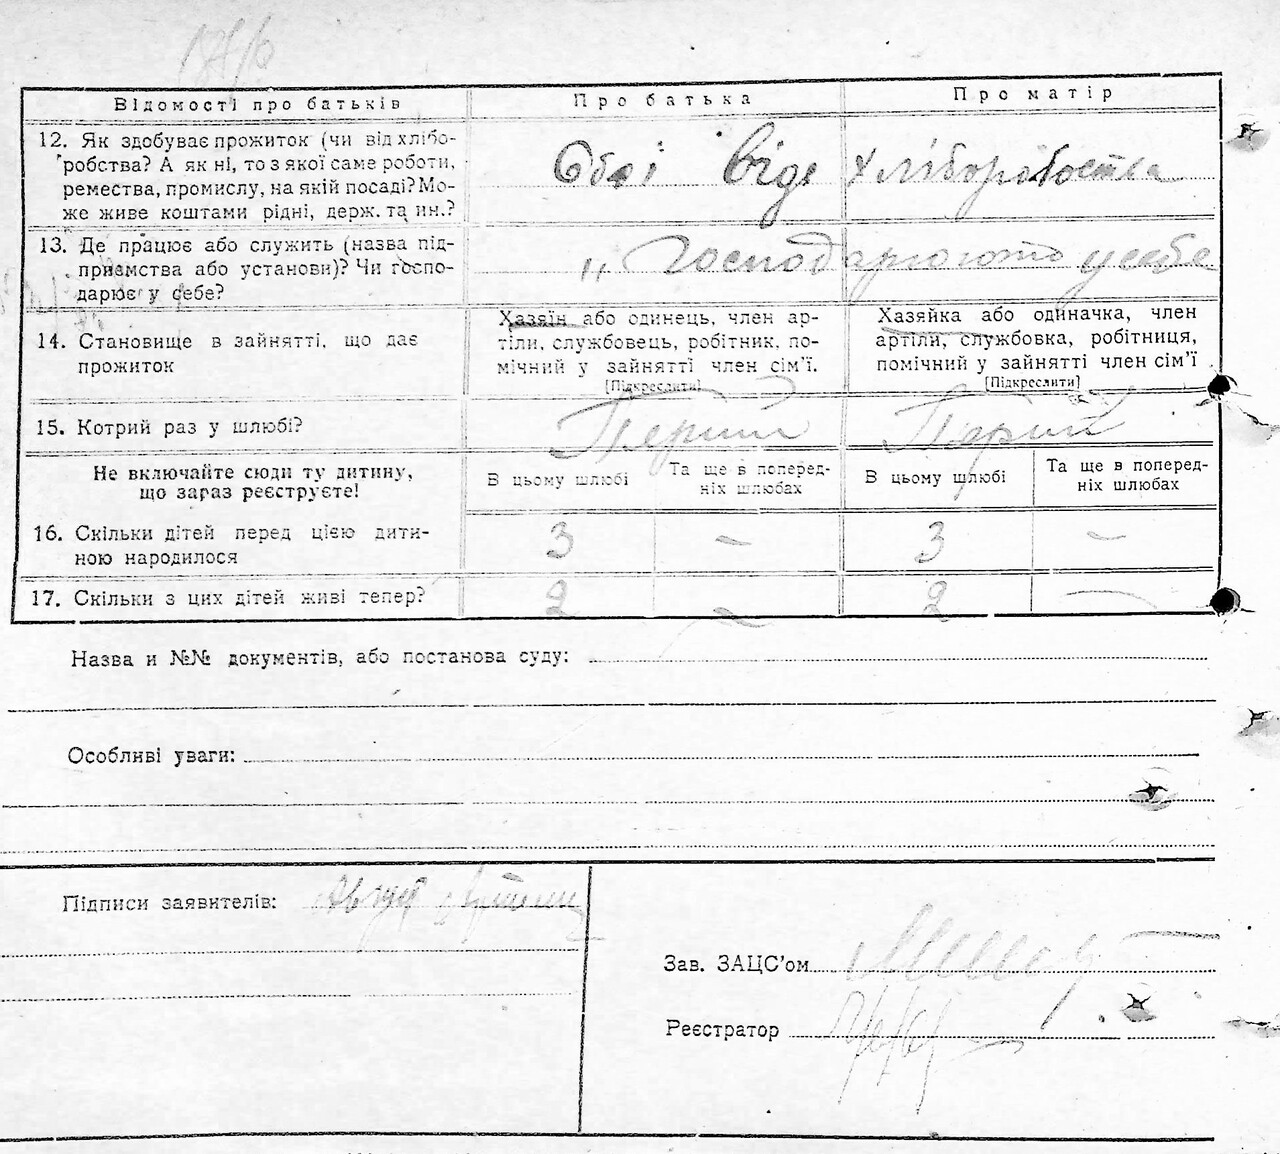 Відомості про батьків
Про батька
Про матір
12. Як здобуває прожиток (чи від хлібо-
робства? А як ні, то з якої саме роботи,
ремества, промислу, на якій посаді? Мо-
же живе коштами рідні, держ. та ин.?
Обоі відъ хліборобоства
13. Де працює або служить (назва під-
приємства або установи)? Чи госпо-
дарює у себе?
„ Господарюють у себе
14. Становище в зайнятті, що дає
прожиток
Хазяїн або одинець, член ар-
тіли, службовець, робітник, по-
мічний у зайнятті член сім'ї.
[Підкреслити]
Хазяйка або одиначка, член
артіли, службовка, робітниця,
помічний у зайнятті член сім'ї
[Підкреслити]
15. Котрий раз у шлюбі?
Перший
Перший
Не включайте сюди ту дитину,
що зараз реєструєте!
В цьому шлюбі
Та ще в поперед-
ніх шлюбах
В цьому шлюбі
Та ще в поперед-
ніх шлюбах
16. Скільки дітей перед цією дити-
ною народилося
3 — 3 —
17. Скільки з цих дітей живі тепер?
2 — 2 —
Назва и №№ документів, або постанова суду:
Особливі уваги:
Підписи заявителів: Август
Зав. ЗАЦС'ом
Реєстратор